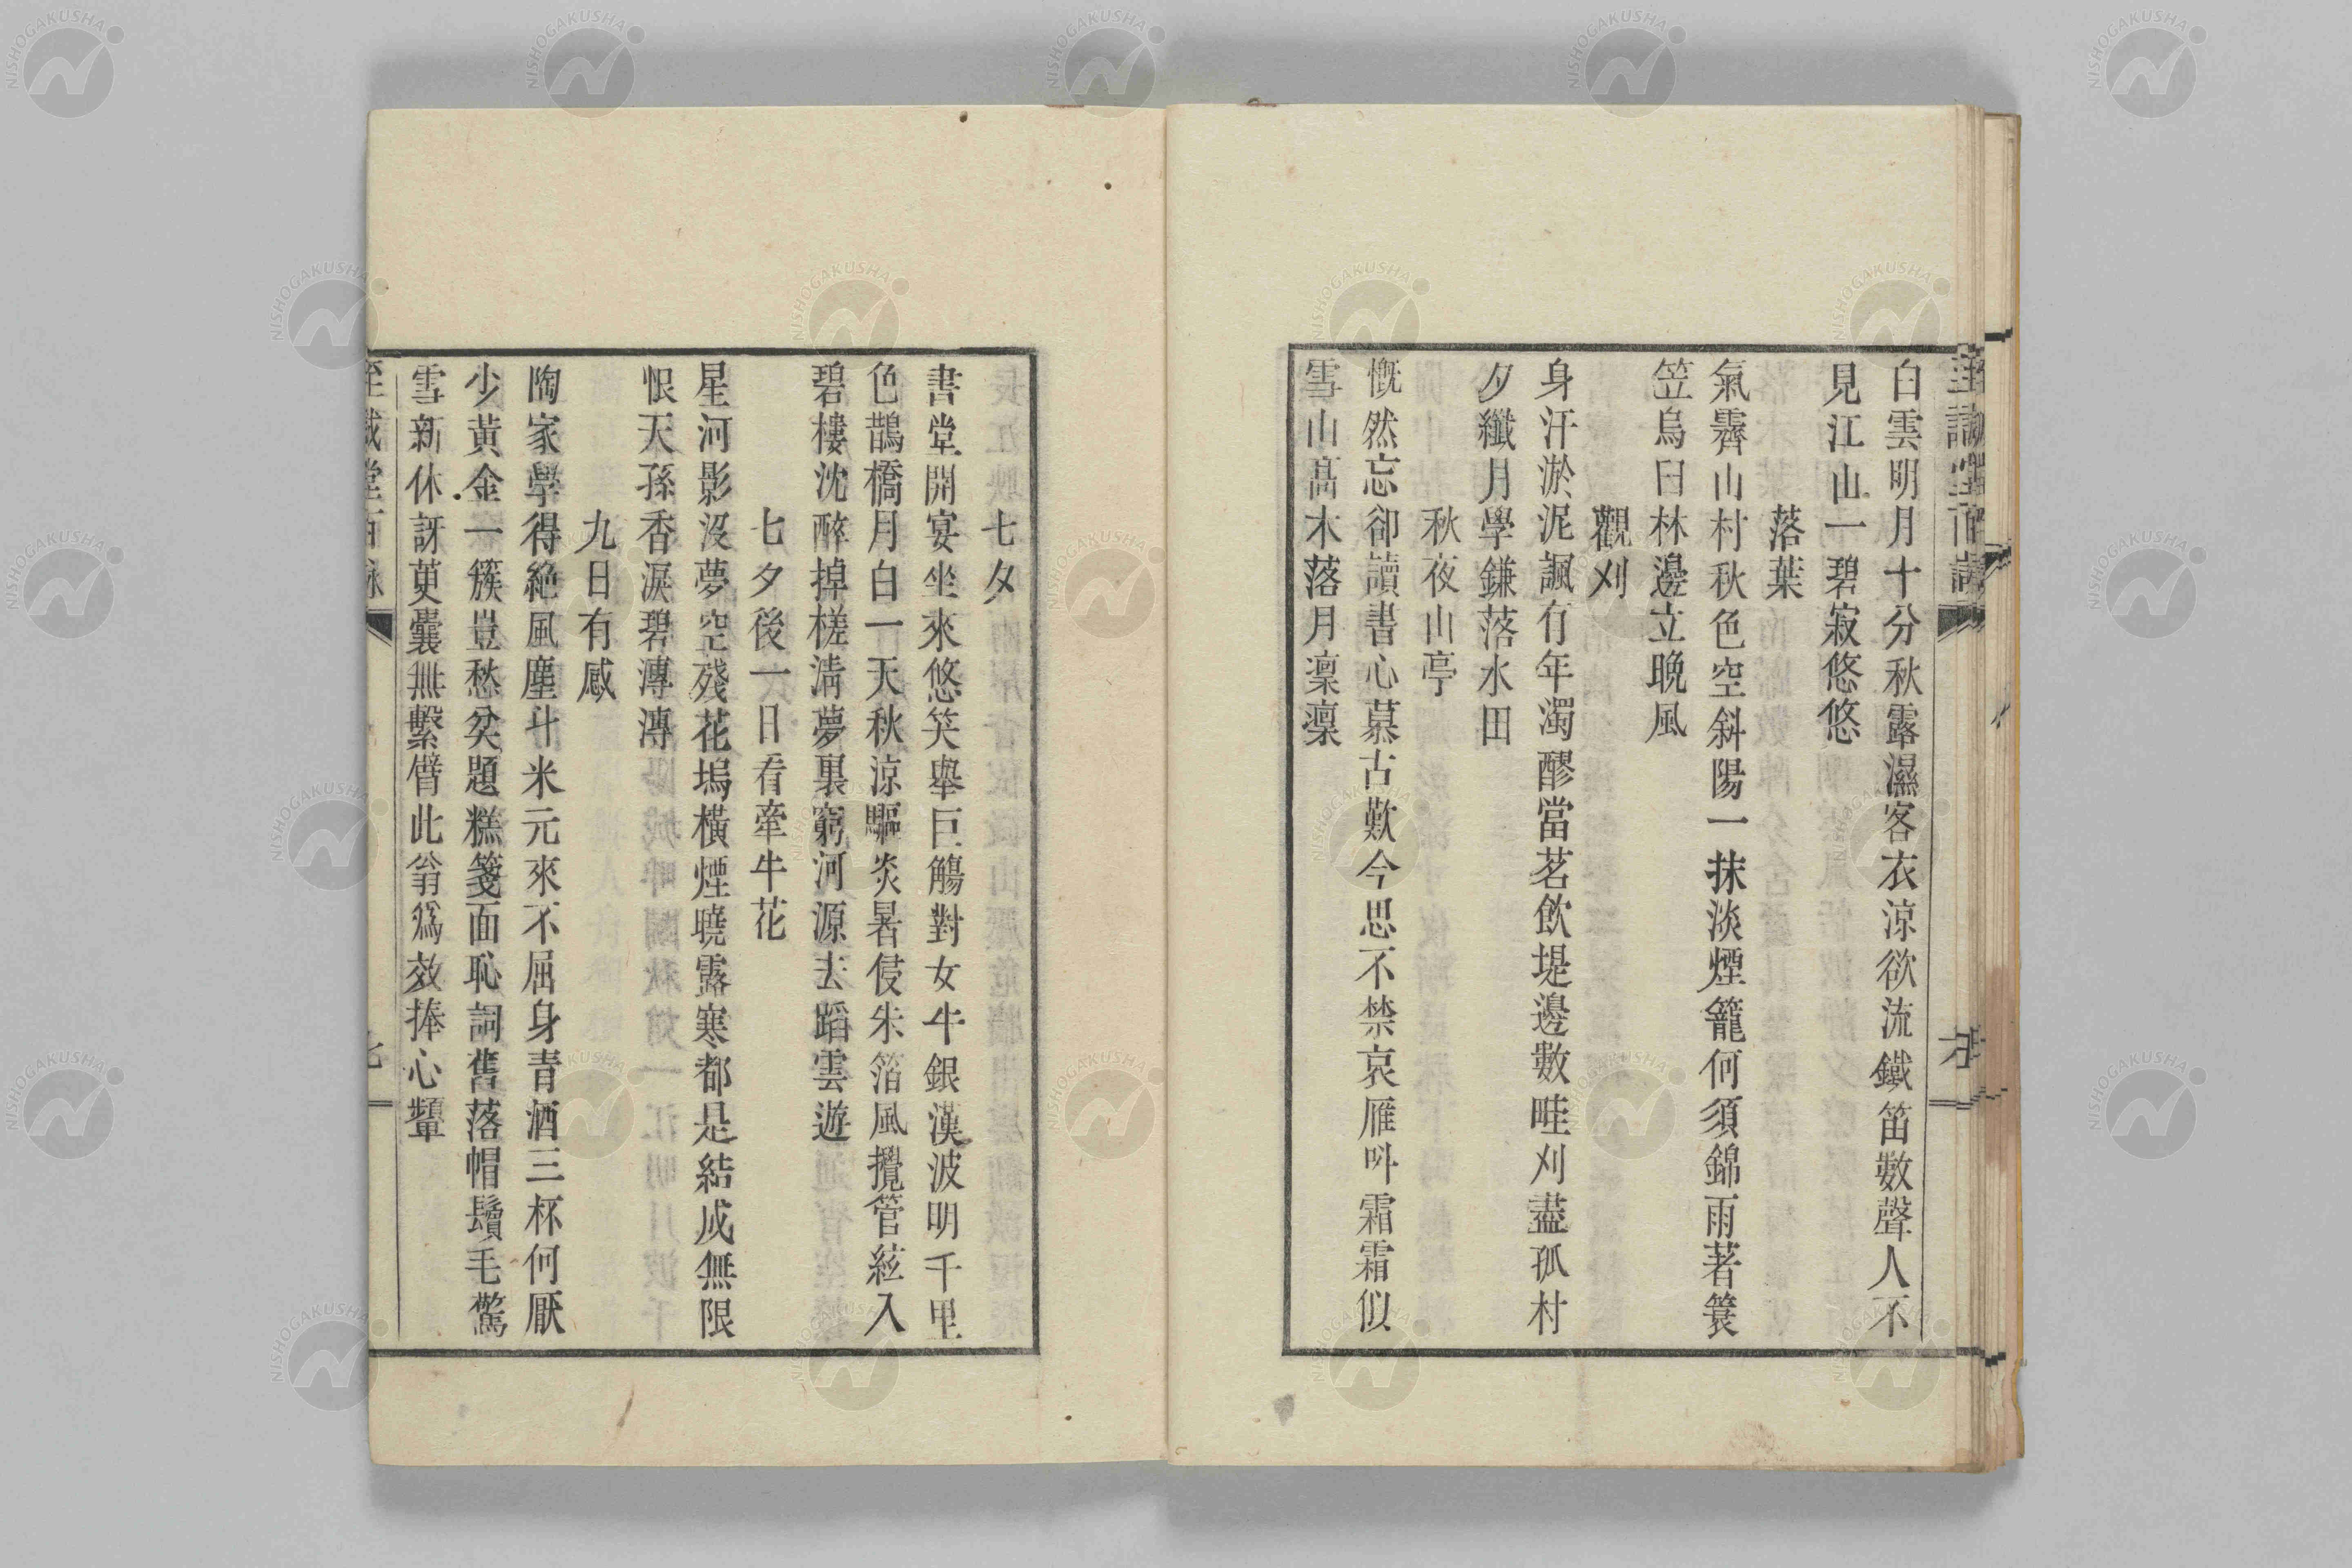 白雲明月十分秋露濕客衣涼欲流鐵笛數聲人不
見江山一碧寂悠悠
落葉
氣霽山村秋色空斜陽一抹淡煙籠何須錦雨著簑
笠烏臼林邊立晚風
觀刈
身汗淤泥諷有年濁醪當茗飮堤邊數畦刈盡孤村
夕纖月學鎌落水田
秋夜山亭
慨然忘卻讀書心慕古歎今思不禁哀雁叫霜霜似
雪山高木落月凜凜
七夕
書堂開宴坐來悠笑舉巨觴對女牛銀漢波明千里
色鵲橋月白一天秋涼驅炎暑侵朱箔風攪管絃入
碧樓沈醉掉槎淸夢裏窮河源去蹈雲遊
七夕後一日看牽牛花
星河影沒夢空殘花塢橫煙曉露寒都是結成無限
恨天孫香淚碧漙漙
九日有感
陶家學得絕風塵斗米元來不屈身靑酒三杯何厭
少黃金一簇豈愁貧題糕箋面恥詞舊落帽鬢毛驚
雪新休訝萸囊無繫臂此翁爲效捧心顰
NISHOGAKUSHA